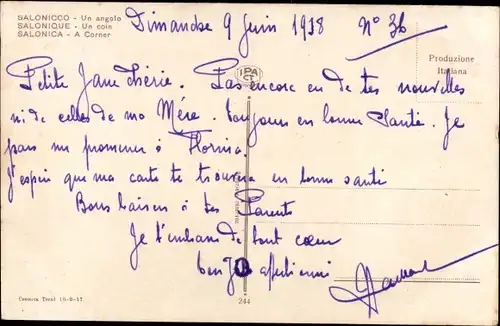 SALONICCO - Un angolo
SALONIQUE - Un coin
SALONICA - A Corner
Dimanche 9 Juin 1918 N° 36
Produzione
Italiana
IPA
CT
Petite Jane Chérie. Pas encore eu de tes nouvelles
ni de celles de ma Mère. Toujours en bonne Santé. Je
pars me promener à Florina.
J'espère que ma carte te trouvera en bonne santé
Bons baisers à tes Parents
Je t'embrasse de tout cœur
ton
244
Censura Toral 18-9-17